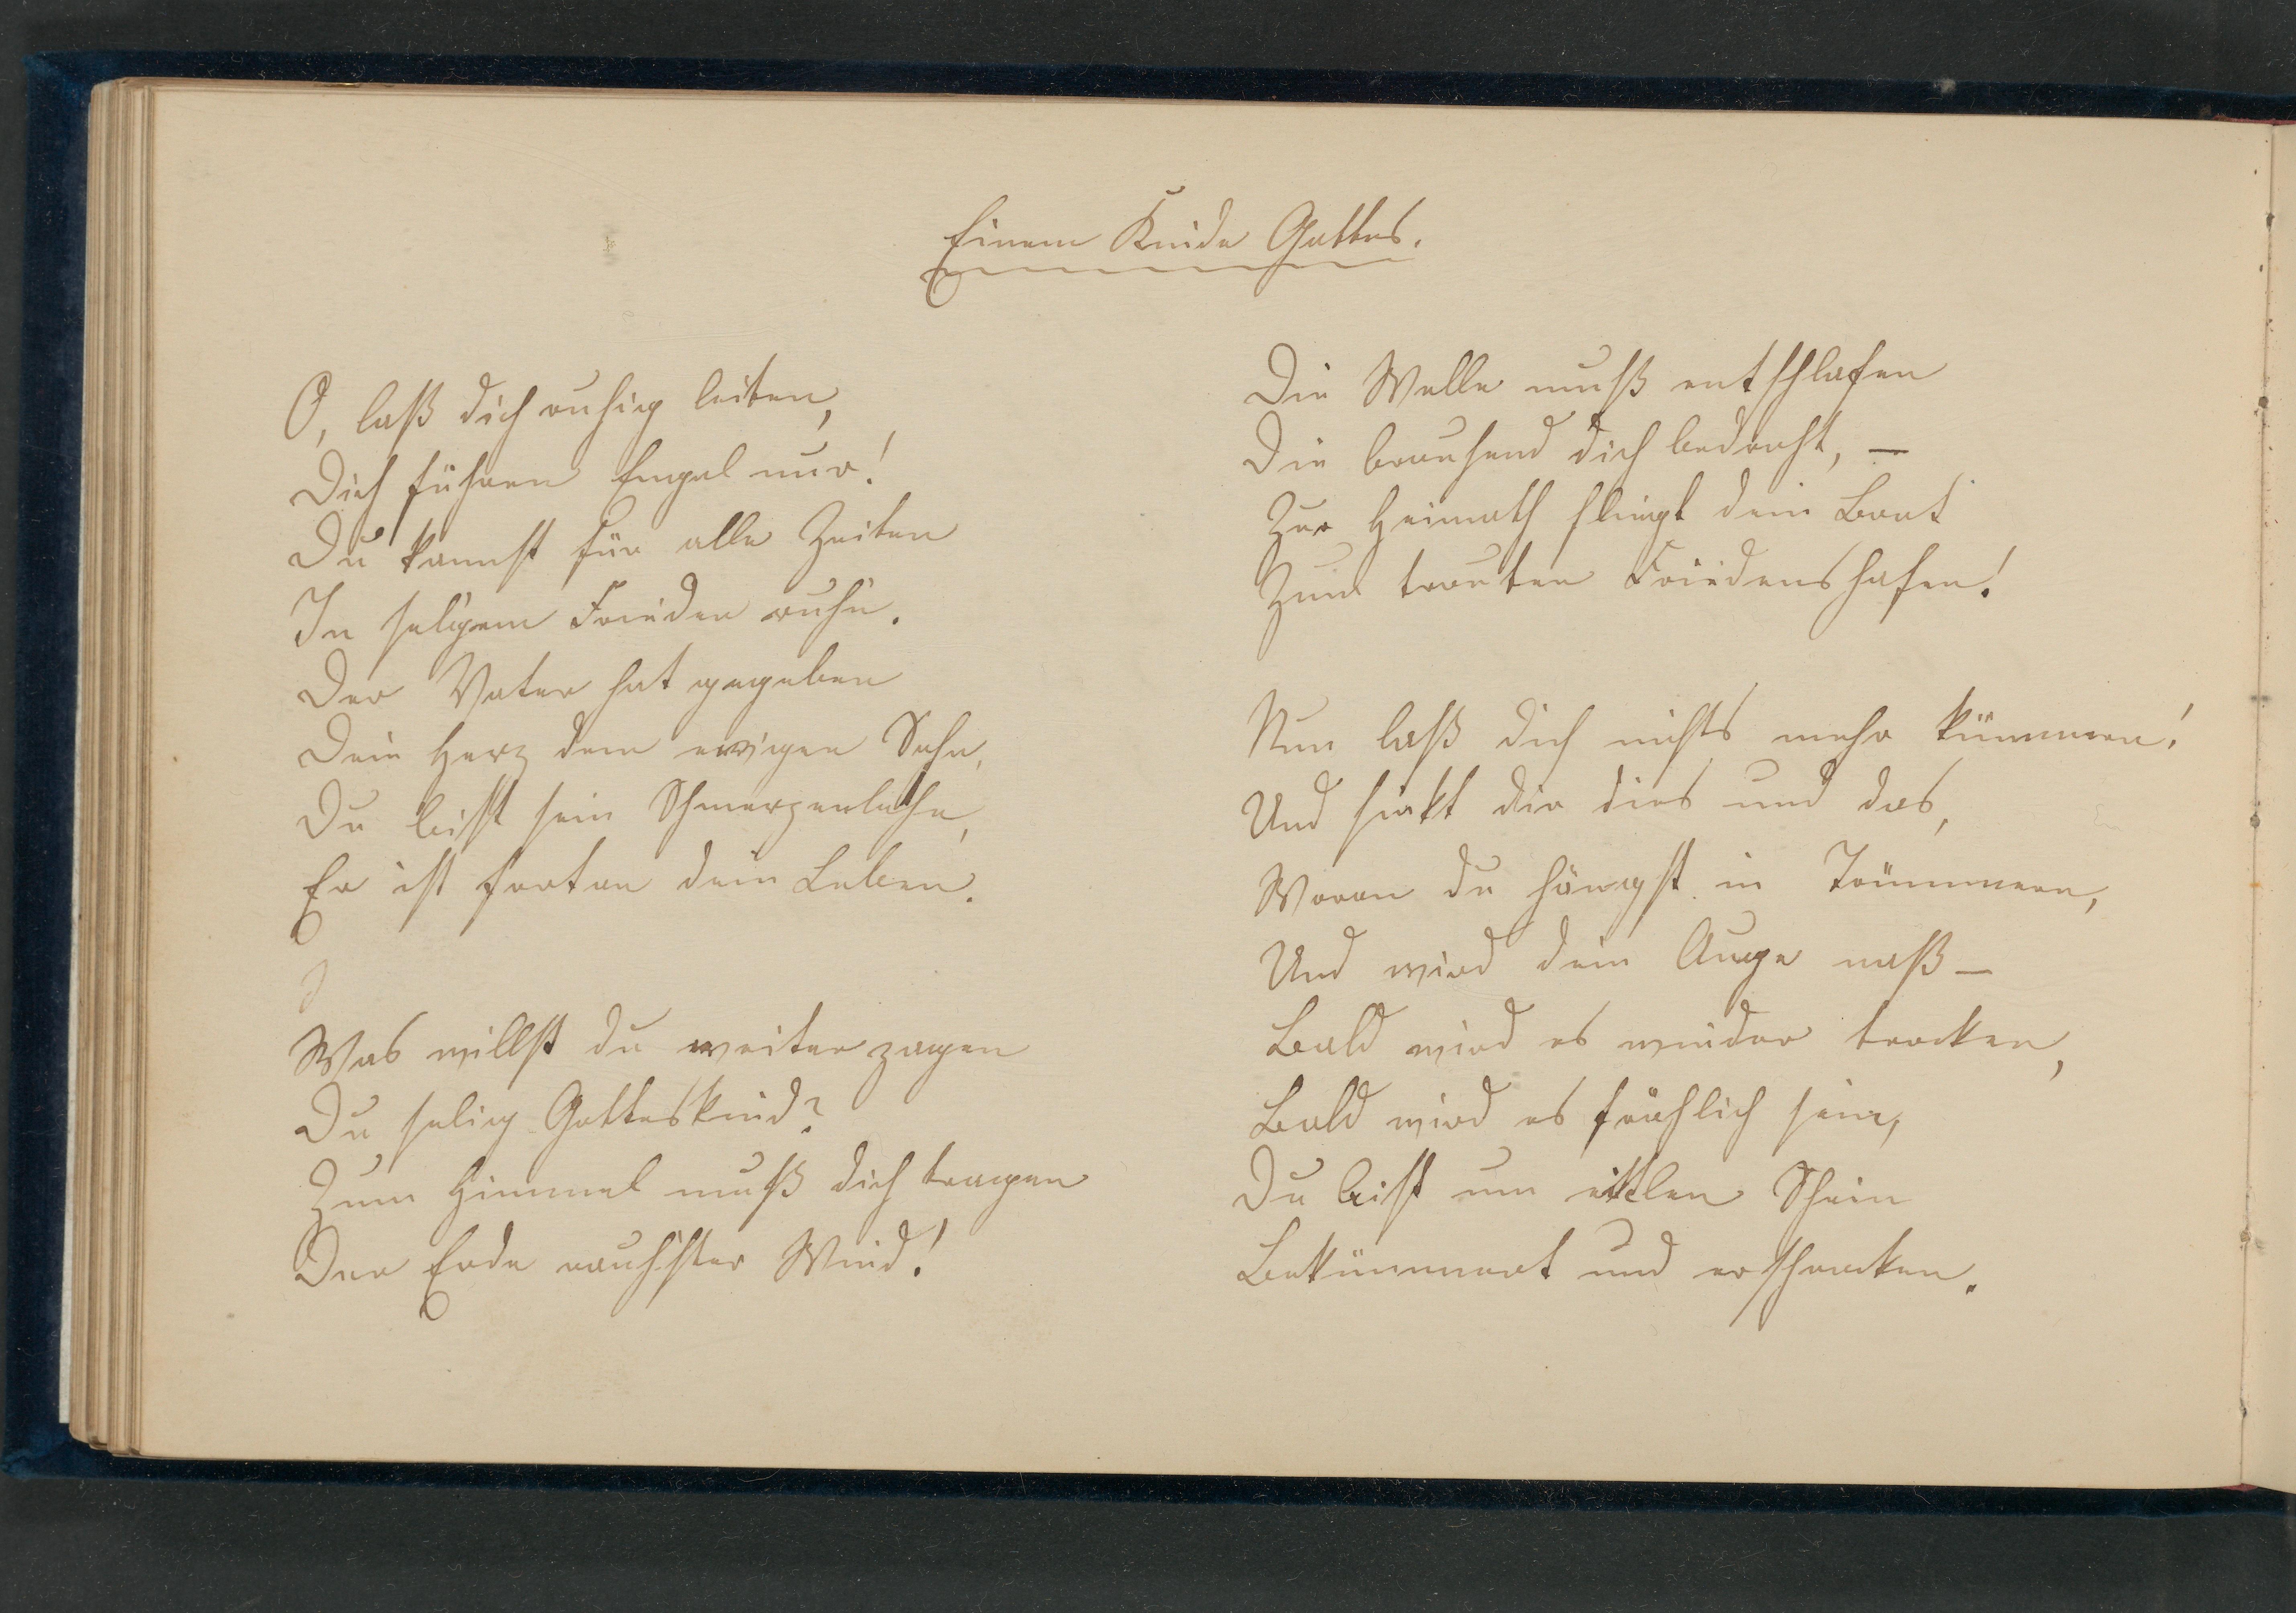 Einem Kinde Gottes.
O, laß dich ruhig leiten,
Dich führen Engel nur!
Du kannst für alle Zeiten
In sel'gem Frieden ruh'n.
Der Vater hat gegeben
Dein Herz dem ewigen Sohn,
Du bist sein Schmerzenlohn,
Er ist fortan dein Leben.
Was willst du weiter zagen
Du selig Gotteskind?
Zum Himmel muß dich tragen
Der Erde rauh'ster Wind!
Die Welle muß entschlafen
Die brausend dich bedroht, —
Zur Heimath fliegt dein Boot
Zum trauten Friedenshafen!
Nun laß dich nichts mehr kümmern!
Und sinkt dir dies und das,
Woran du hängst in Trümmern,
Und wird dein Auge naß —
Bald wird es wieder trocken,
Bald wird es fröhlich sein,
Du bist um eitlen Schein
Bekümmert und erschrocken.